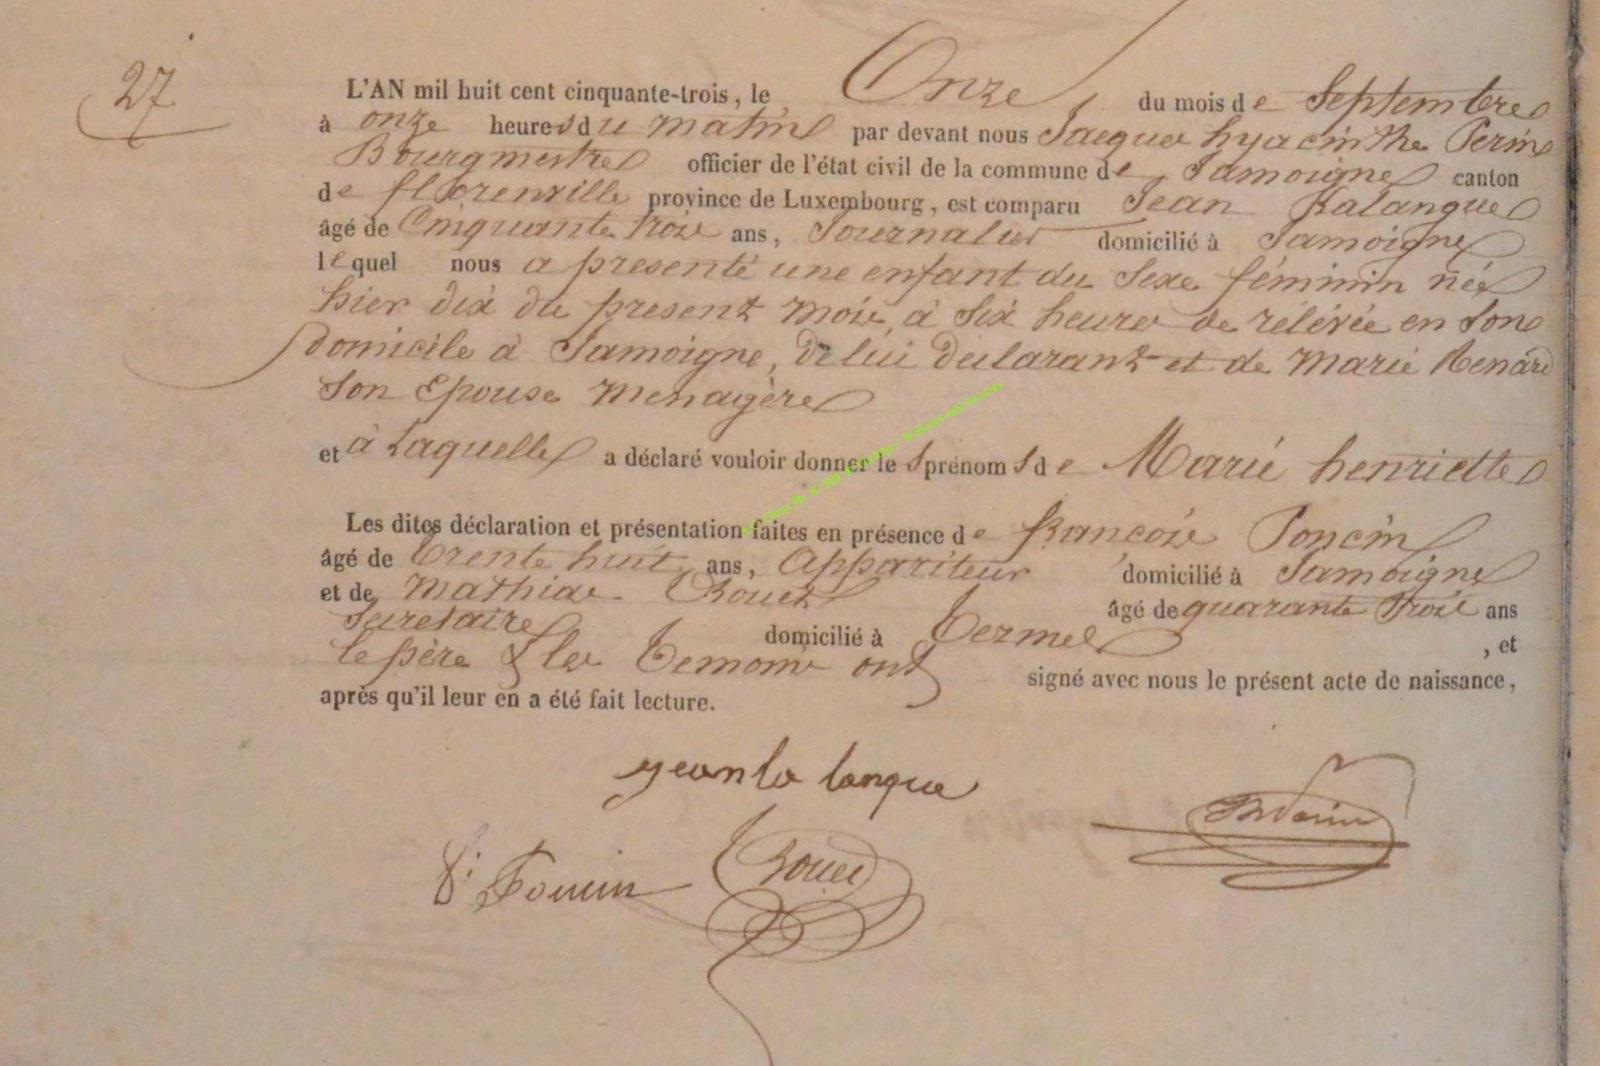 27
L'AN mil huit cent cinquante-trois, le Onze du mois de Septembre
à onze heures du matin par devant nous Jacque hyacinthe Perin
Bourgmestre officier de l'état civil de la commune de Jamoigne canton
de florenville province de Luxembourg, est comparu Jean Lalangue
âgé de Cinquante trois ans, Journalier domicilié à Jamoigne
lequel nous a presenté une enfant du Sexe féminin née
hier dix du present mois, à six heures de rélévée en Son
domicile à Jamoigne, de lui declarant et de Marie Renard
Son Epouse menagère
et à Laquelle a déclaré vouloir donner les prénoms de Marie henriette
Les dites déclaration et présentation faites en présence de françois Poncin
âgé de trente huit ans, Appariteur domicilié à Jamoigne
et de Mathias Rouez âgé de quarante trois ans
Secretaire domicilié à Termes , et
le père & les Temoins ont signé avec nous le présent acte de naissance,
après qu'il leur en a été fait lecture.
jean la langue
f: Poncin